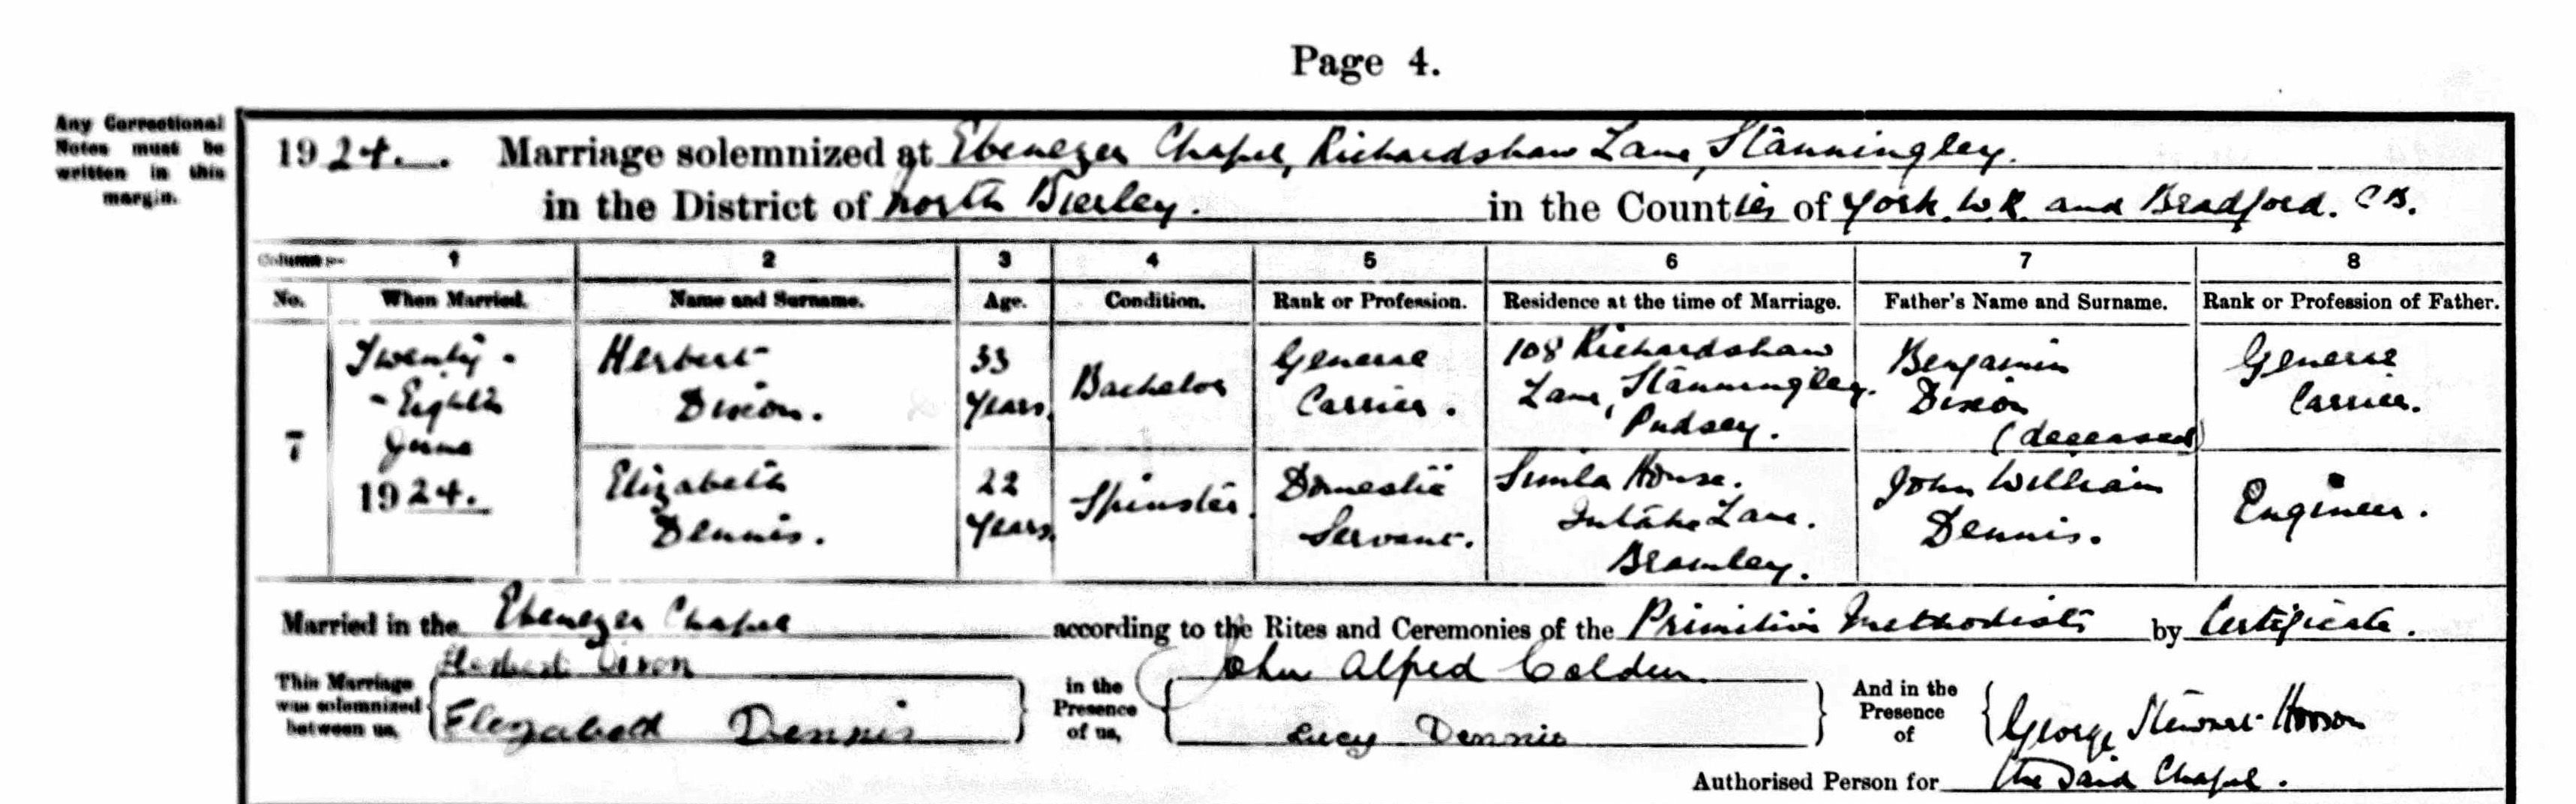 Page 4.
Any Correctional
Notes must be
written in this
margin.
1924. Marriage solemnized at Ebenezer Chapel, Richardshaw Lane, Stanningley.
in the District of North Bierley. in the Counties of York. W.R. and Bradford. C.B.
Column:— 1 2 3 4 5 6 7 8
No. When Married. Name and Surname. Age. Condition. Rank or Profession. Residence at the time of Marriage. Father's Name and Surname. Rank or Profession of Father.
7
Twenty -
- Eighth
June
1924.
Herbert
Dixon.
33
Years.
Bachelor
General
Carrier.
108 Richardshaw
Lane, Stanningley.
Pudsey.
Benjamin
Dixon
(deceased)
General
Carrier.
Elizabeth
Dennis.
22
Years.
Spinster.
Domestic
Servant.
Simla House.
Intake Lane.
Bramley.
John William
Dennis.
Engineer.
Married in the Ebenezer Chapel according to the Rites and Ceremonies of the Primitive Methodists by Certificate.
This Marriage
was solemnized
between us,
Herbert Dixon
Elizabeth Dennis
in the
Presence
of us,
John Alfred
Lucy Dennis
And in the
Presence
of
George
Authorised Person for the said Chapel.